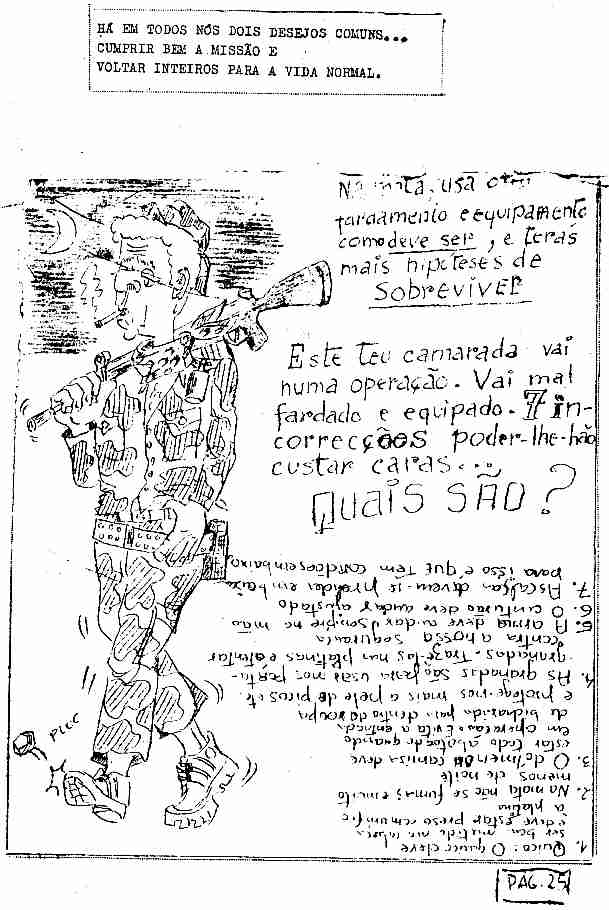 HÁ EM TODOS NÓS DOIS DESEJOS COMUNS...
CUMPRIR BEM A MISSÃO E
VOLTAR INTEIROS PARA A VIDA NORMAL.
Na mata, usa o teu
fardamento e equipamento
como deve ser, e terás
mais hipóteses de
Sobreviver
Este teu camarada vai
numa operação. Vai mal
fardado e equipado. 7 in-
correcções poder-lhe-hão
custar caras...
Quais são?
PLOC
1. Quico: O quico deve
ser bem metido na cabeça
e deve estar preso com um fio
à platina
2. Na mata não se fuma; e muito
menos de noite
3. O dolmen ou camisa deve
estar todo abotoado quando
em operação. Evita a entrada
de bicharada para dentro da roupa
e protege-nos mais a pele de picos etc.
4. As granadas são para usar nos porta-
granadas. Trazê-las nas platinas é atentar
contra a nossa segurança
5. A arma deve andar sempre na mão
6. O cinturão deve andar ajustado
7. As calças devem-se prender em baixo
para isso é que têm cordões em baixo.
PÁG. 25